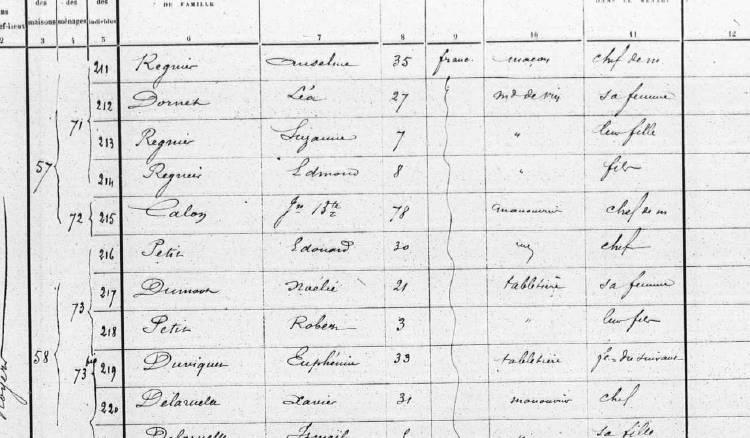 des des DE FAMILLE DANS LE MÉNAGE
maisons ménages individus
2 3 4 5 6 7 8 9 10 11 12
211 Regnier Anselme 35 franc. maçon chef de m
212 Dornet Léa 27 md de vin sa femme
71
213 Regnier Suzanne 7 " leur fille
57
214 Regnier Edmond 8 " fils
72 215 Calon Jn Bte 78 manouvrier chef de m
216 Petit Edouard 30 chef
217 Dumont Noélie 21 tabletière sa femme
73
218 Petit Robert 3 " leur fils
58 73 bis 219 Euphémie 33 tabletière
220 Delaruelle Xavier 31 manouvrier chef
Delaruelle Ismaël sa fille